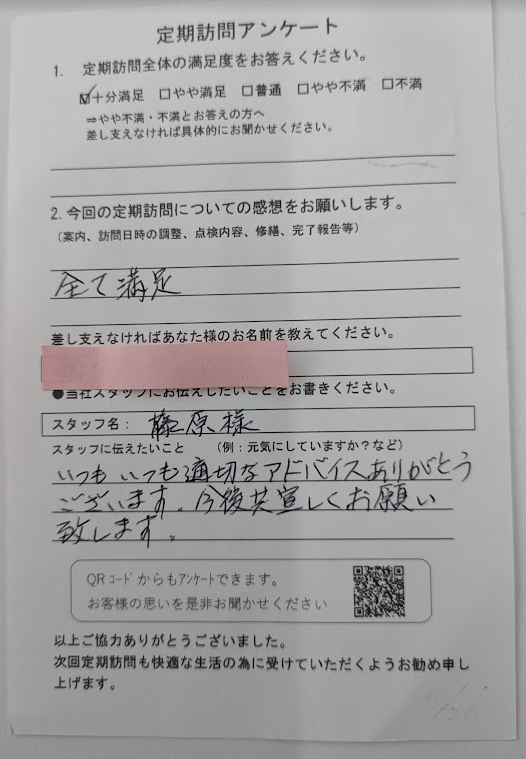 定期訪問アンケート
1. 定期訪問全体の満足度をお答えください。
☑十分満足 □やや満足 □普通 □やや不満 □不満
⇒やや不満・不満とお答えの方へ
差し支えなければ具体的にお聞かせください。
2.今回の定期訪問についての感想をお願いします。
(案内、訪問日時の調整、点検内容、修繕、完了報告等)
全て満足
差し支えなければあなた様のお名前を教えてください。
●当社スタッフにお伝えしたいことをお書きください。
スタッフ名: 藤原様
スタッフに伝えたいこと (例:元気にしていますか?など)
いつもいつも適切なアドバイスありがとう
ございます。今後共宜しくお願い
致します。
QRコードからもアンケートできます。
お客様の思いを是非お聞かせください
以上ご協力ありがとうございました。
次回定期訪問も快適な生活の為に受けていただくようお勧め申し
上げます。